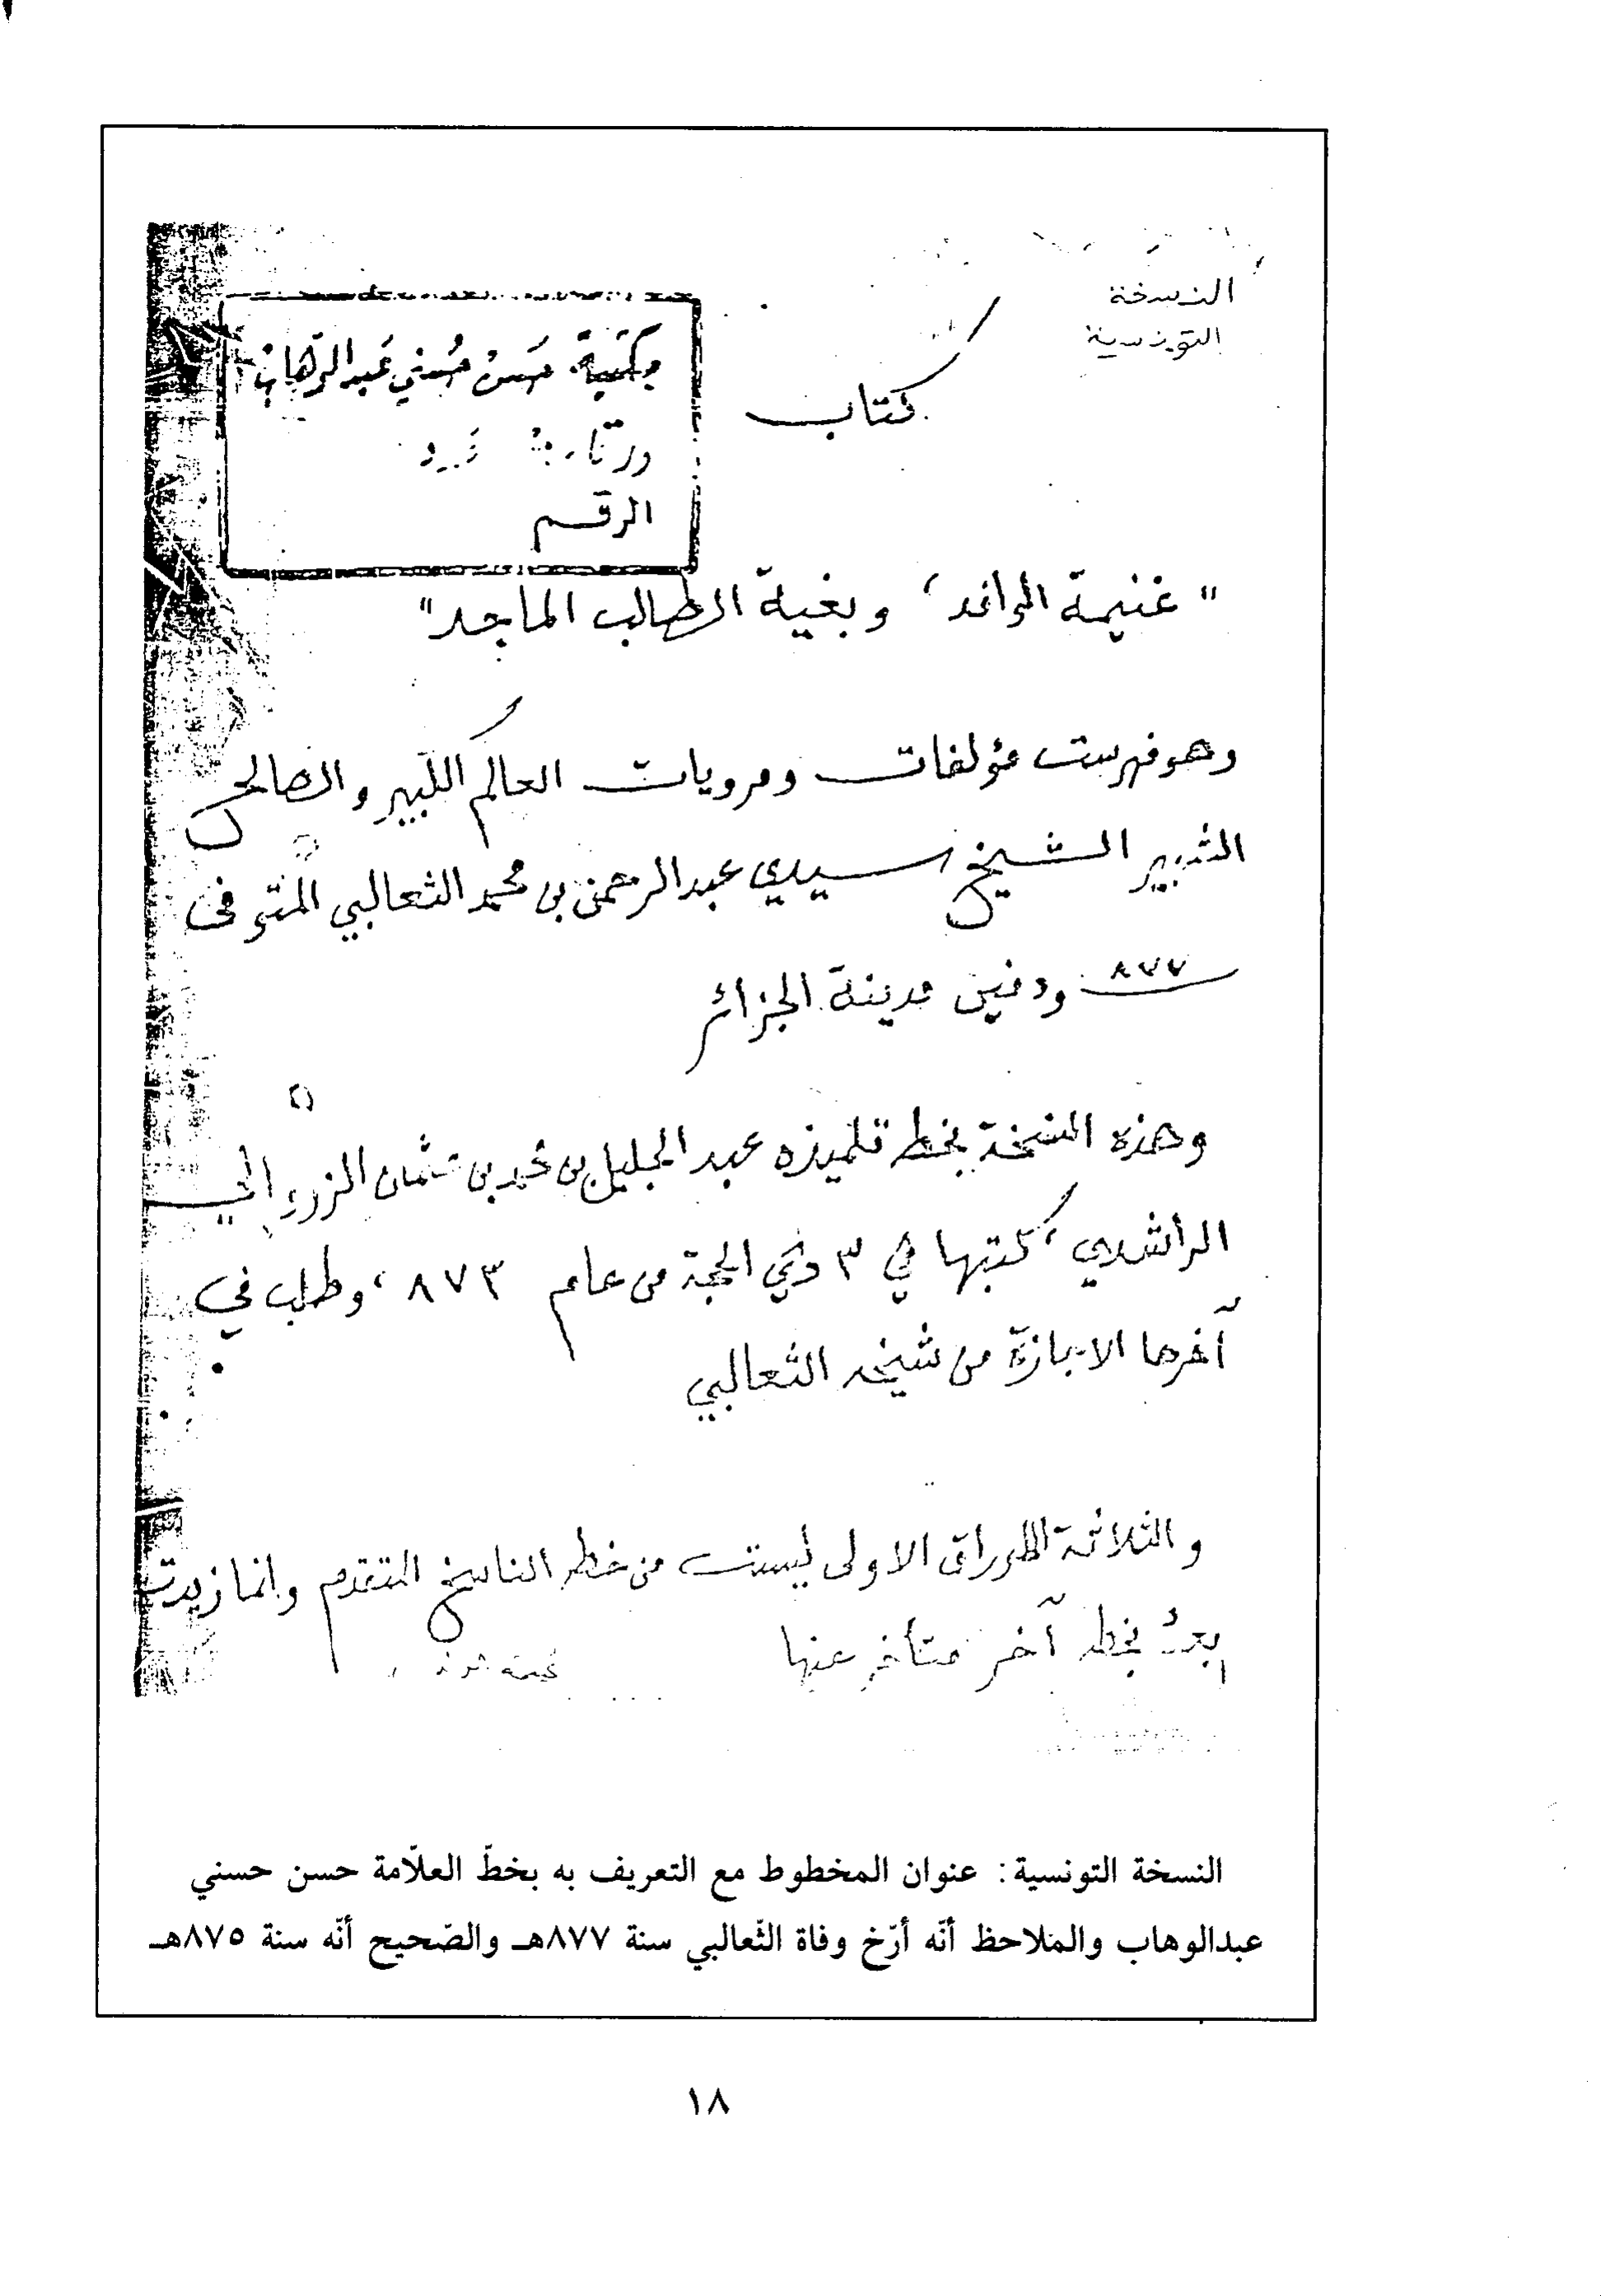 النسخة
التونسية
مكتبة حسن حسني عبد الوهاب
الرقم
كتاب
"غنيمة الوافد، وبغية الطالب الماجد"
وهو فهرست مؤلفات ومرويات العالم الكبير والصالح
الشهير الشيخ سيدي عبد الرحمن بن محمد الثعالبي المتوفى
٨٧٧ ودفين مدينة الجزائر
وهذه النسخة بخط تلميذه عبد الجليل بن محمد بن عثمان
الراشدي، كتبها في ٣ ذي الحجة من عام ٨٧٣، وطلب في
آخرها الاجازة من شيخه الثعالبي
والثلاثة اوراق الاولى ليست من خط الناسخ المتقدم وانما زيدت
بعد بخط آخر متأخر عنها
النسخة التونسية: عنوان المخطوط مع التعريف به بخطّ العلاّمة حسن حسني
عبدالوهاب والملاحظ أنّه أرّخ وفاة الثّعالبي سنة ٨٧٧هـ والصّحيح أنّه سنة ٨٧٥هـ
١٨